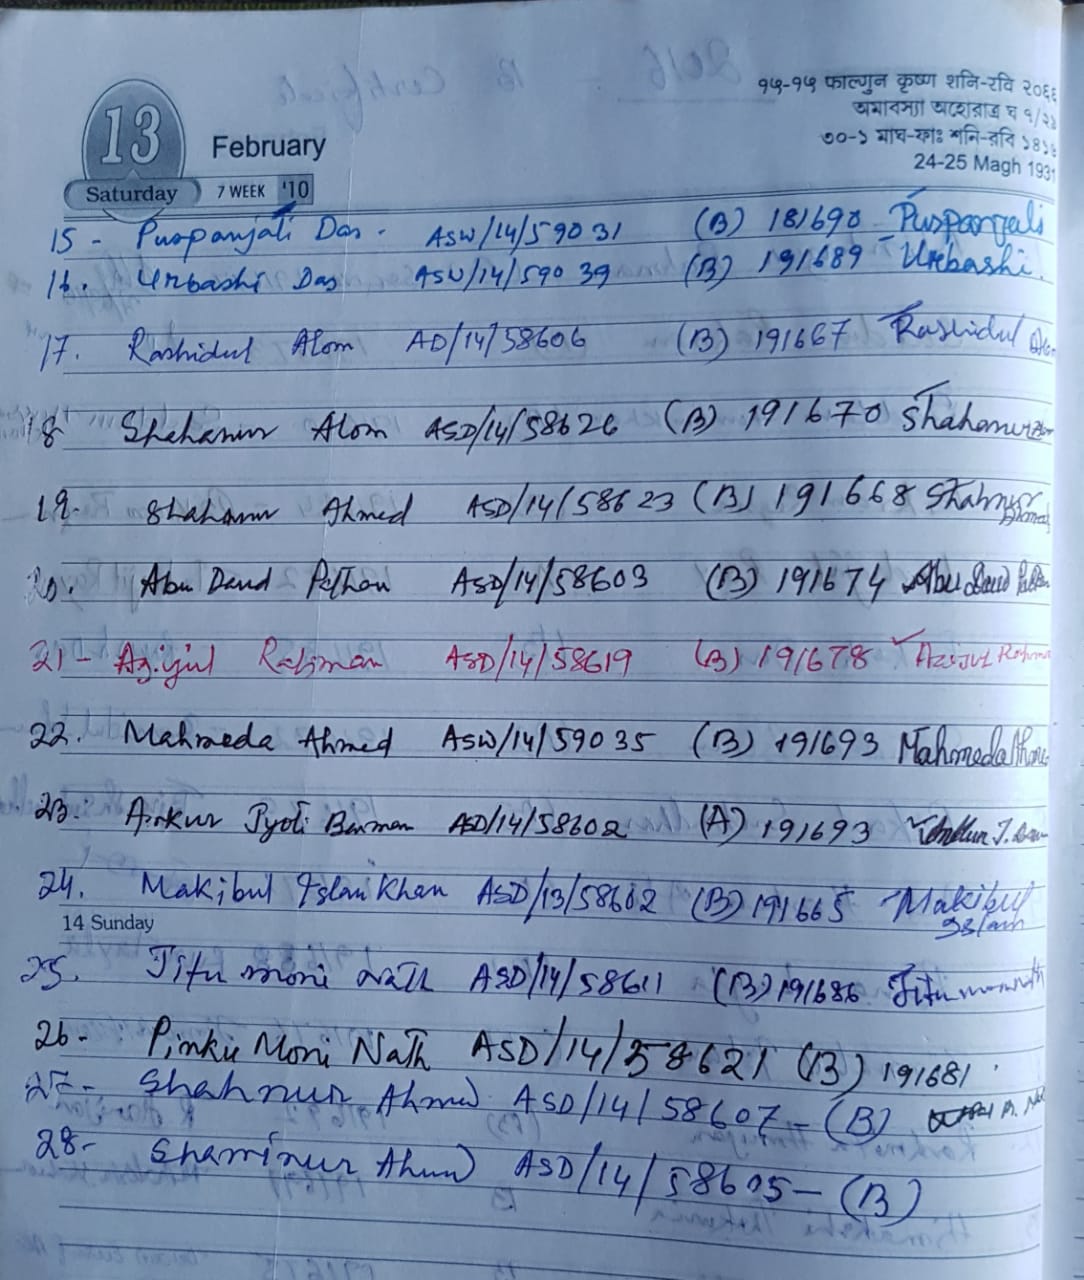 १५-१५ फाल्गुन कृष्ण शनि-रवि २०६६
অমাবস্যা অহোরাত্র ঘ ৭/২৪
৩০-১ মাঘ-ফাঃ শনি-রবি ১৪১৬
24-25 Magh 1931
13
February
Saturday
7 WEEK '10
15 - Puspanjali Das. ASW/14/59031 (B) 181690 Puspanjali
16. Urbashi Das ASW/14/59039 (B) 191689 Urbashi.
17. Rashidul Alom AD/14/58606 (B) 191667 Rashidul
18 Shahanur Alom ASD/14/58626 (B) 191670 Shahanur
19. Shahanur Ahmed ASD/14/58623 (B) 191668 Shahnur Ahmed
20. Abu Daud Pathan ASD/14/58603 (B) 191674 Abu Daud Pathan
21 - Azijul Rahman ASD/14/58619 (B) 191678 Azijul Rahma
22. Mahmeda Ahmed ASW/14/59035 (B) 191693 Mahmeda Ahme
23. Ankur Jyoti Barman ASD/14/58602 (A) 191693 Ankur J. Bar
24. Makibul Islam Khan ASD/13/58662 (B) 191665 Makibul
Islam
14 Sunday
25. Jitu moni Nath ASD/14/58611 (B) 191686 Jitu moni nath
26- Pinku Moni Nath ASD/14/58621 (B) 191681
27- Shahnur Ahmed ASD/14/58607 - (B)
28- Shaminur Ahmed ASD/14/58605 - (B)